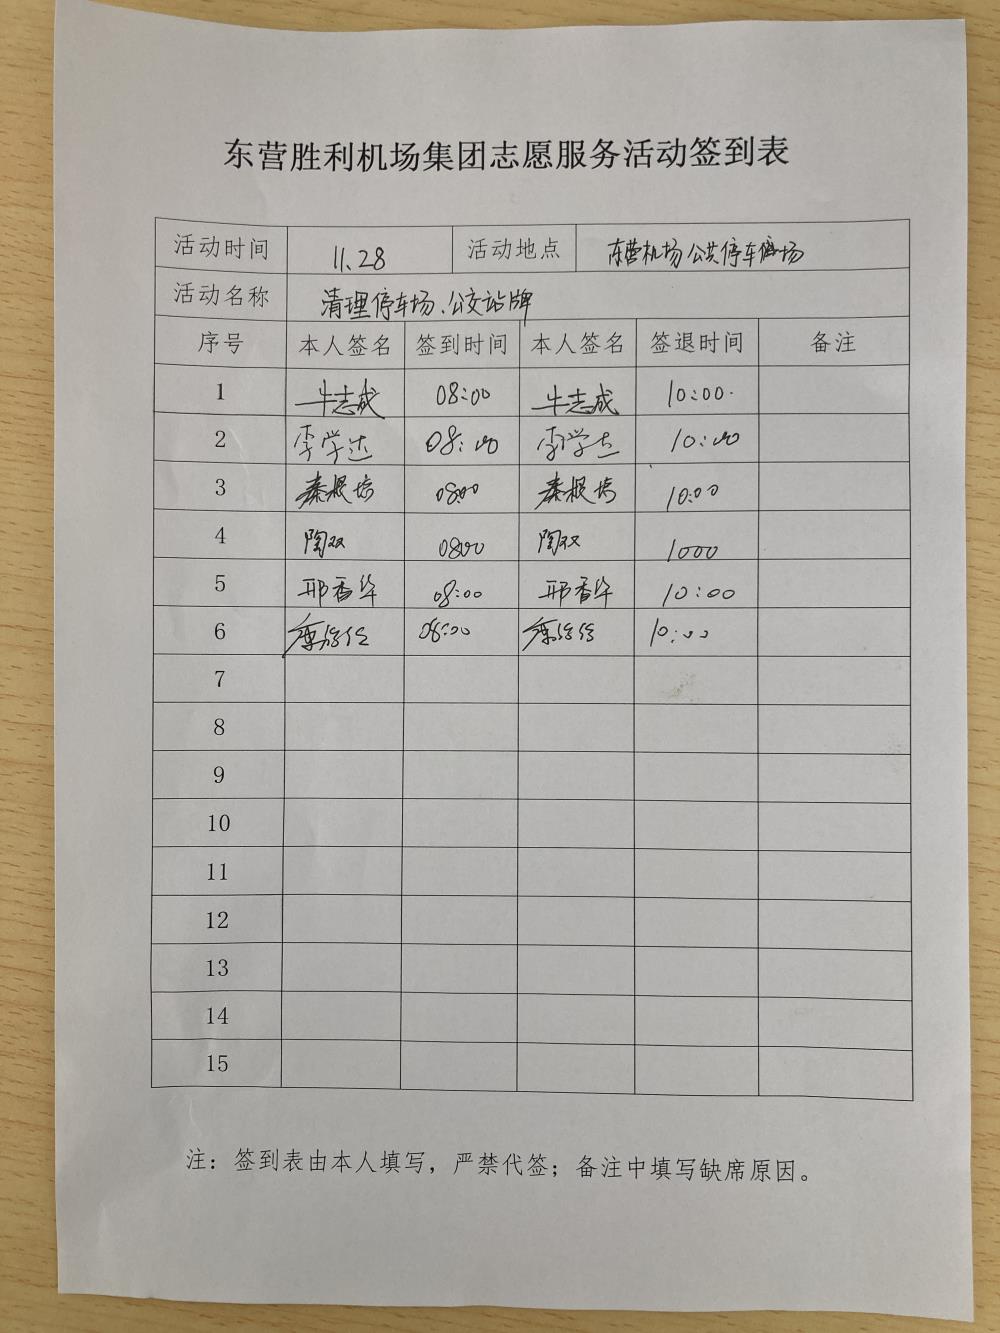 东营胜利机场集团志愿服务活动签到表
活动时间 11.28 活动地点 东营机场公共停车场
活动名称 清理停车场、公交站牌
序号 本人签名 签到时间 本人签名 签退时间 备注
1 牛志成 08:00 牛志成 10:00
2 李学达 08:00 李学达 10:00
3 秦根培 08:00 秦根培 10:00
4 陶双 0800 陶双 1000
5 邢香华 08:00 邢香华 10:00
6 08:00 10:00
7
8
9
10
11
12
13
14
15
注：签到表由本人填写，严禁代签；备注中填写缺席原因。